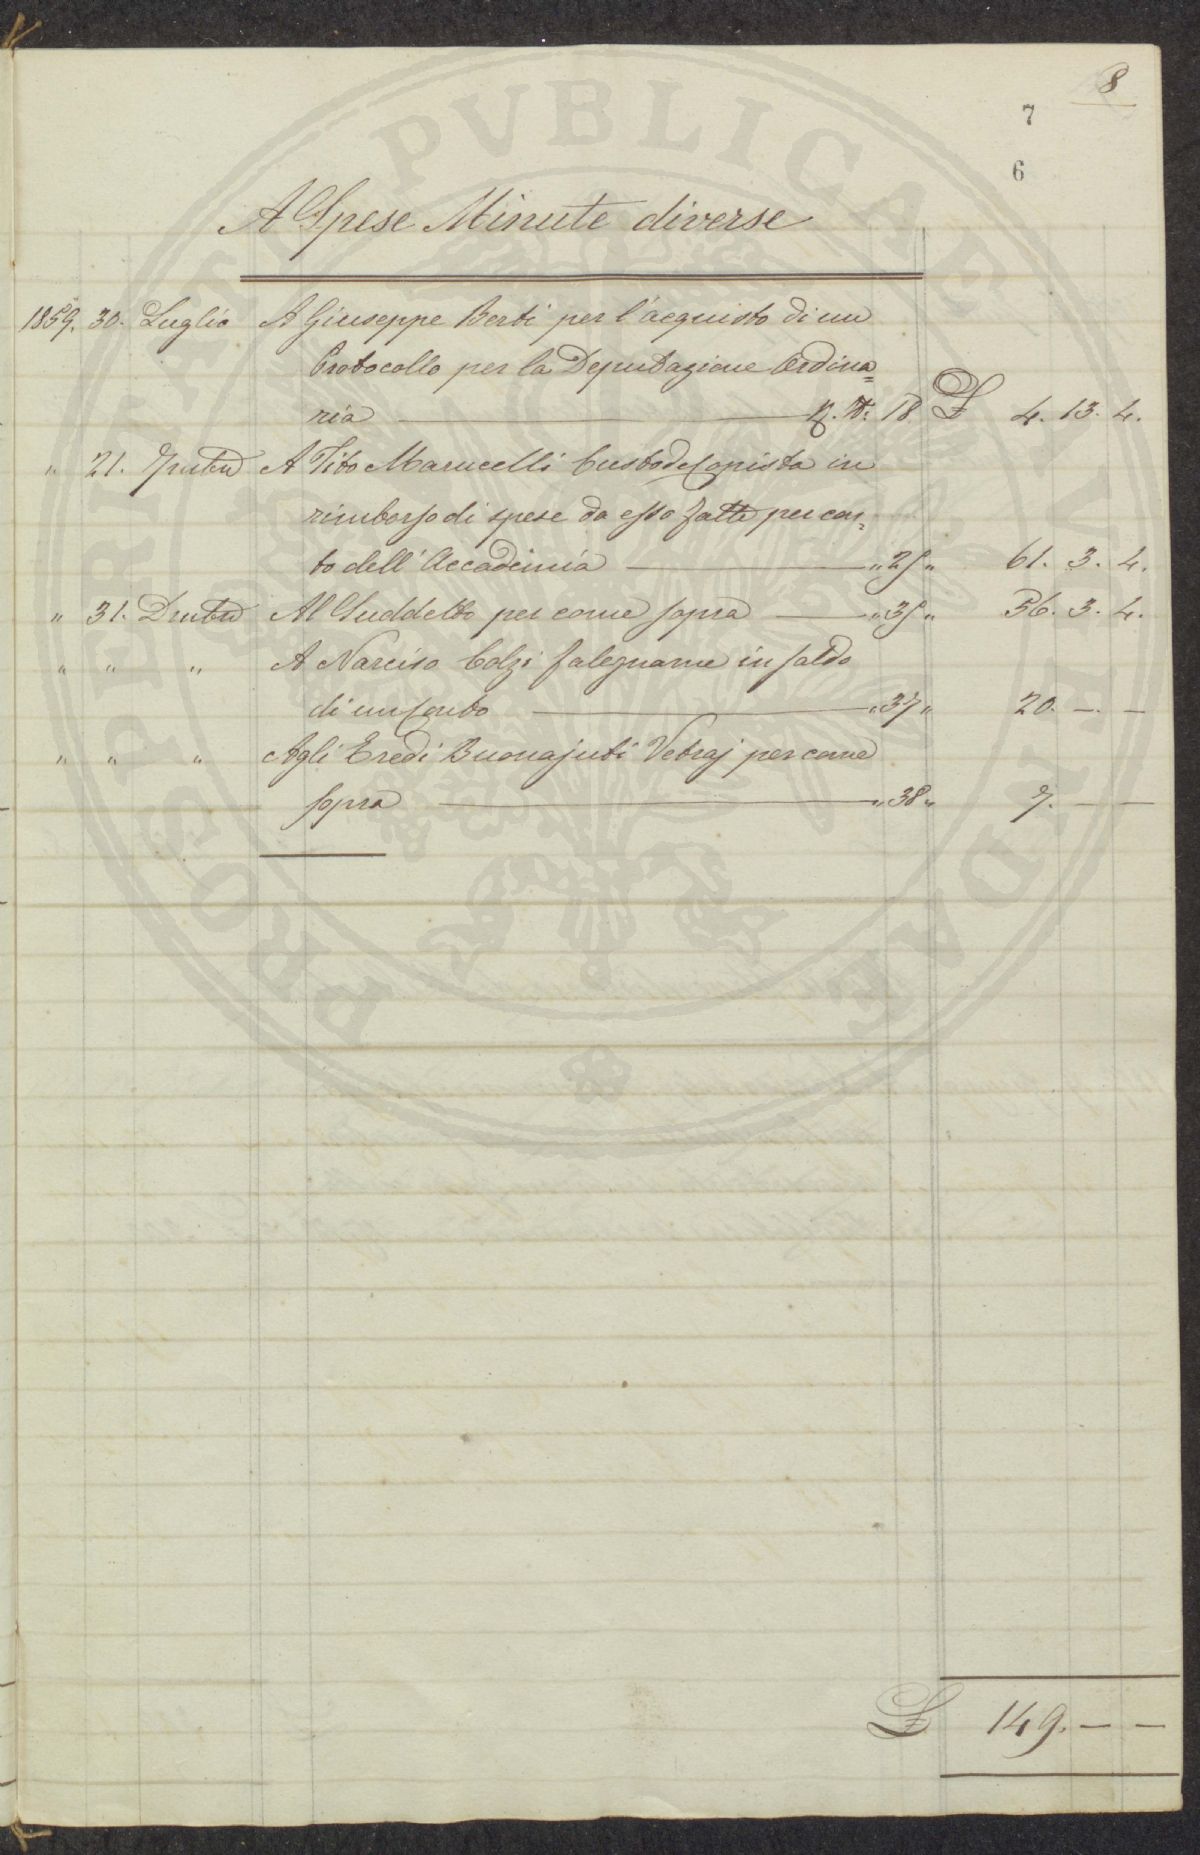 8
7
6
PROSPERITATI PVBLICAE AVGENDAE
A Spese Minute diverse
1859. 30. Luglio A Giuseppe Berti per l'acquisto di un
Protocollo per la Deputazione Ordina=
ria R. N. 18. £ 4. 13. 4.
" 21. 7mbre A Tito Marucelli Custode Copista in
rimborso di spese da esso fatte per con=
to dell'Accademia " 25 " 61. 3. 4.
" 31. Dmbre Al Suddetto per come sopra " 35 " 56. 3. 4.
" " " A Narciso Colzi falegname in saldo
di un Conto " 37 " 20. - -
" " " Agli Eredi Buonajuti Vetraj per come
sopra " 38 " 7. - -
£ 149. - -